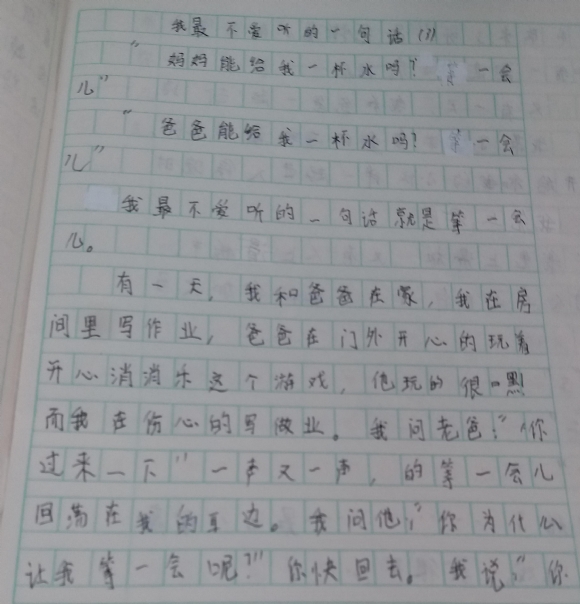 我最不爱听的一句话(1)
"妈妈能给我一杯水吗?等一会
儿"
"爸爸能给我一杯水吗?等一会
儿"
我最不爱听的一句话就是等一会
儿。
有一天,我和爸爸在家,我在房
间里写作业,爸爸在门外开心的玩着
开心消消乐这个游戏,他玩的很
而我在伤心的写做业。我问老爸:"你
过来一下"一声又一声,的等一会儿
回荡在我的耳边。我问他:"你为什么
让我等一会呢?"你快回去。我说:"你